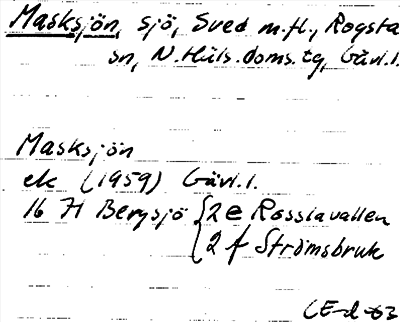 Masksjön, sjö, Sved m.fl., Rogsta
sn, N.Häls.doms.tg, Gävl.l.
Masksjön
ek (1959) Gävl.l.
16 H Bergsjö { 2 e Rossiavallen
{ 2 f Strömsbruk
CE-d-63